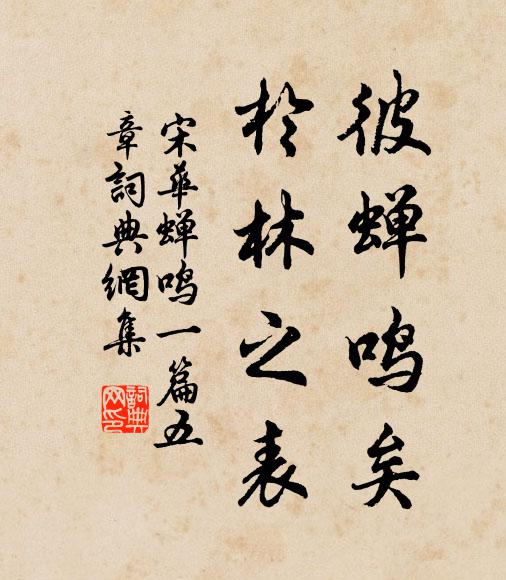 彼蝉鸣矣
於林之表
宋华蝉鸣一篇五
章詞典網集
詞典
网印